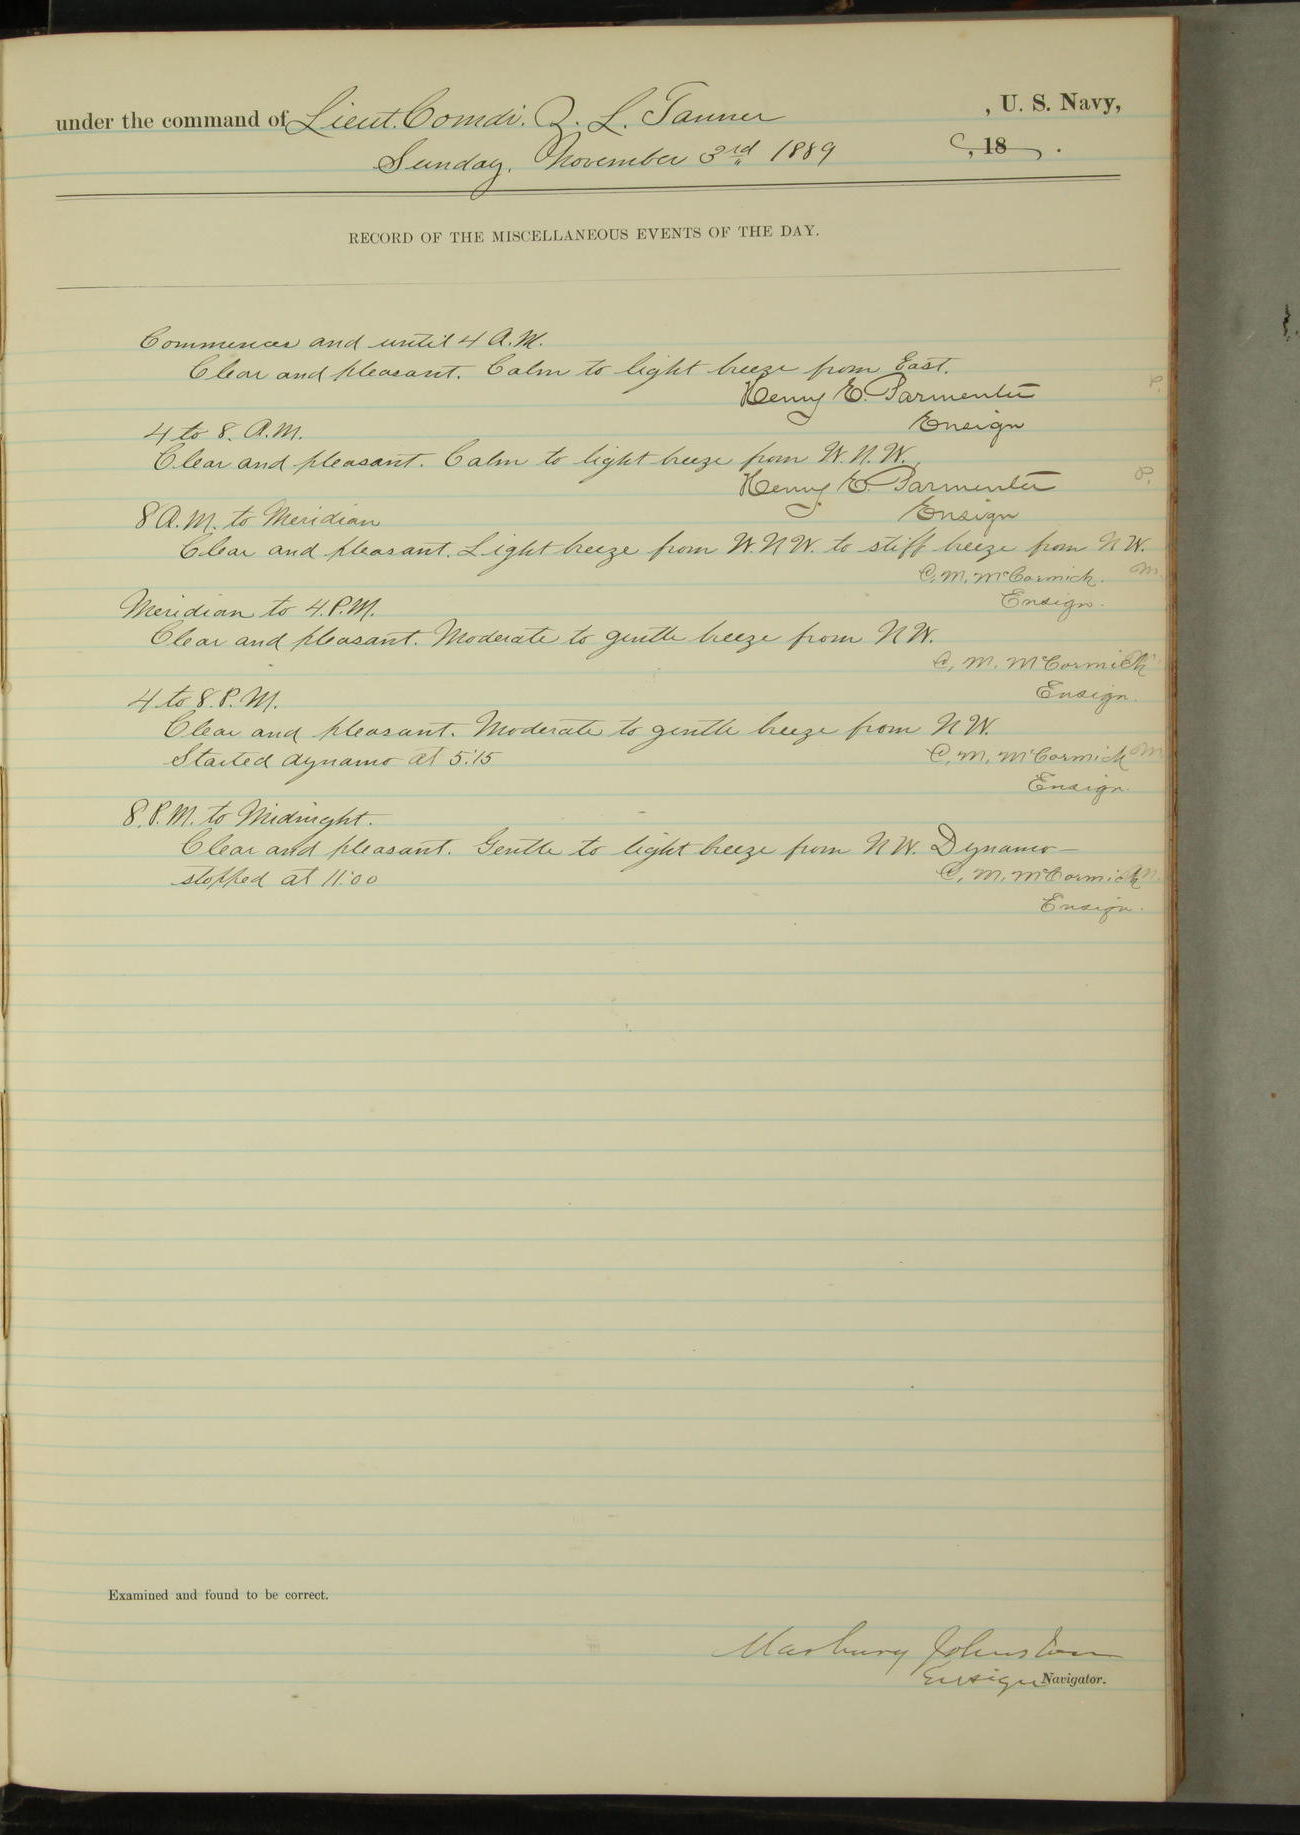 under the command of Lieut. Comdr. Z. L. Tanner , U. S. Navy,
Sunday, November 3rd 1889 , 18 .
RECORD OF THE MISCELLANEOUS EVENTS OF THE DAY.
Commences and until 4 A.M.
Clear and pleasant. Calm to light breeze from East.
Henry E. Parmenter
Ensign
4 to 8. A.M.
Clear and pleasant. Calm to light breeze from W.N.W.
Henry E. Parmenter P.
Ensign
8 A.M. to Meridian
Clear and pleasant. Light breeze from W.N.W. to stiff breeze from N W.
C. M. McCormick. M.
Ensign.
Meridian to 4. P.M.
Clear and pleasant. Moderate to gentle breeze from N W.
C. M. McCormick
Ensign.
4 to 8. P.M.
Clear and pleasant. Moderate to gentle breeze from N W.
Started dynamo at 5:15 C. M. McCormick M
Ensign.
8. P.M. to Midnight.
Clear and pleasant. Gentle to light breeze from N W. Dynamo
stopped at 11:00 C. M. McCormick
Ensign.
Examined and found to be correct.
Marbury Johnston
Ensign Navigator.